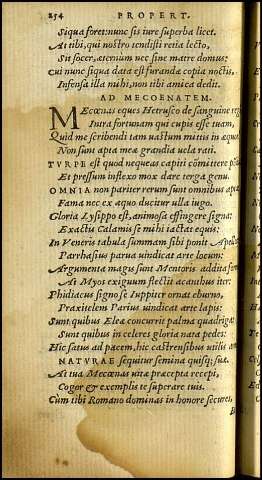 254 PROPERT.
Siqua foret: nunc sis iure superba licet.
At tibi, qui nostro tendisti retia lecto,
Sit socer, aeternum nec sine matre domus:
Cui nunc siqua data est furandae copia noctis,
Infensa illa mihi, non tibi amica dedit.
AD MECOENATEM.
Mecoenas eques Hetrusco de sanguine regum
Intra fortunam qui cupis esse tuam,
Quid me scribendi tam uastum mittis in aequor
Non sunt apta meae grandia uela rati.
TVRPE est quod nequeas capiti committere pondus
Et pressum inflexo mox dare terga genu.
OMNIA non pariter rerum sunt omnibus apta
Fama nec ex aequo ducitur ulla iugo.
Gloria Lysippo est, animosa effingere signa:
Exactis Calamis se mihi iactat equis:
In Veneris tabula summam sibi ponit Apelles
Parrhasius parua uindicat arte locum:
Argumenta magis sunt Mentoris addita
At Myos exiguum flectit acanthus iter:
Phidiacus signo se Iuppiter ornat eburno,
Praxitelem Parius uindicat arte lapis:
Sunt quibus Eleae concurrit palma quadrigae:
Sunt quibus in celeres gloria nata pedes:
Hic satus ad pacem, hic castrensibus utilis
NATVRAE sequitur semina quisq; suae.
At tua Mecoenas uitae praecepta recepi,
Cogor & exemplis te superare tuis.
Cùm tibi Romano dominas in honore secures,